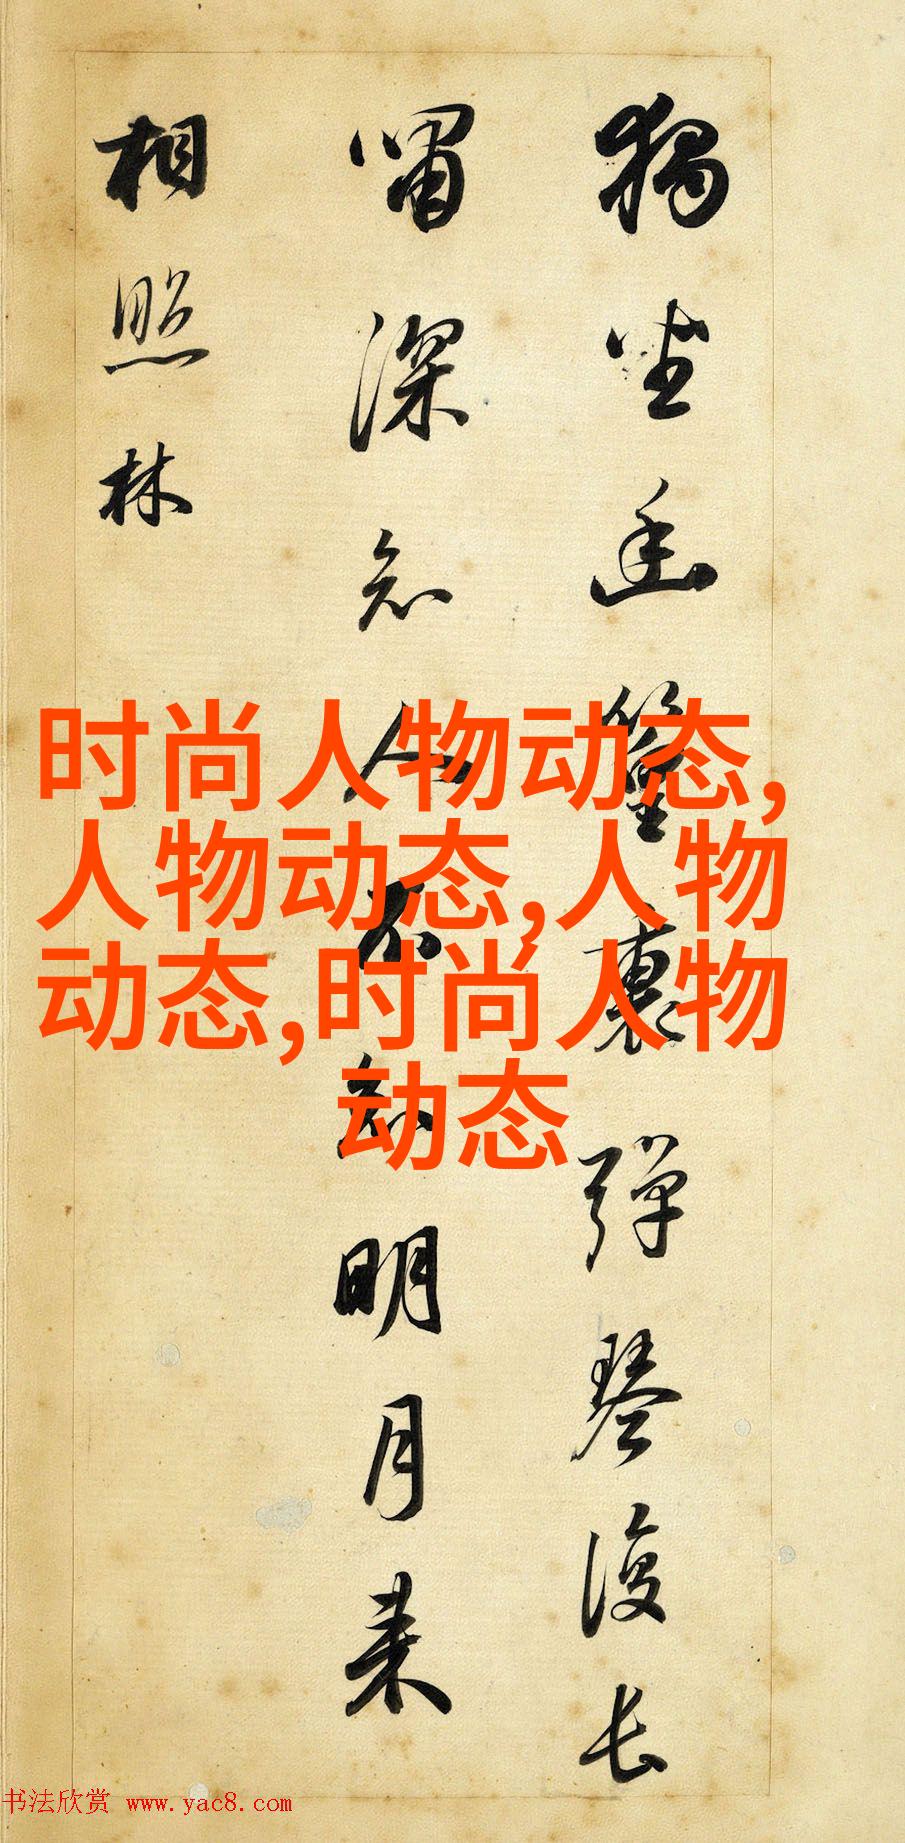 獨坐幽篁裏彈琴復長
嘯深知人不知明月来
相照林
时尚人物动态,
人物动态,人物
动态,时尚人物
动态
书法欣赏 www.yac8.com